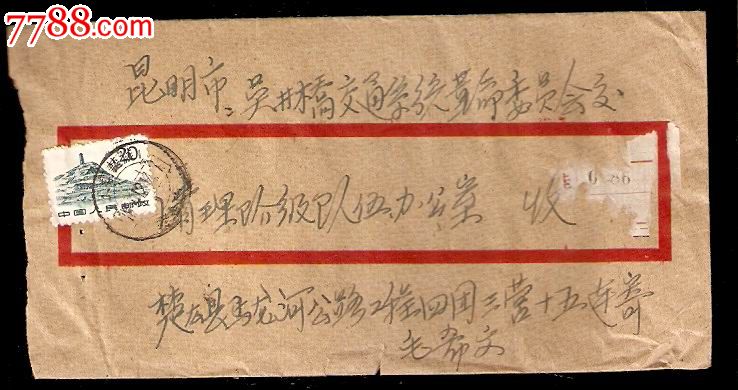 7788.com
昆明市:吴井桥交通系统革命委员会交
20
中国人民邮政
清理阶级队伍办公室 收
楚雄县龙河公路工程四团三营十五连寄
毛希文